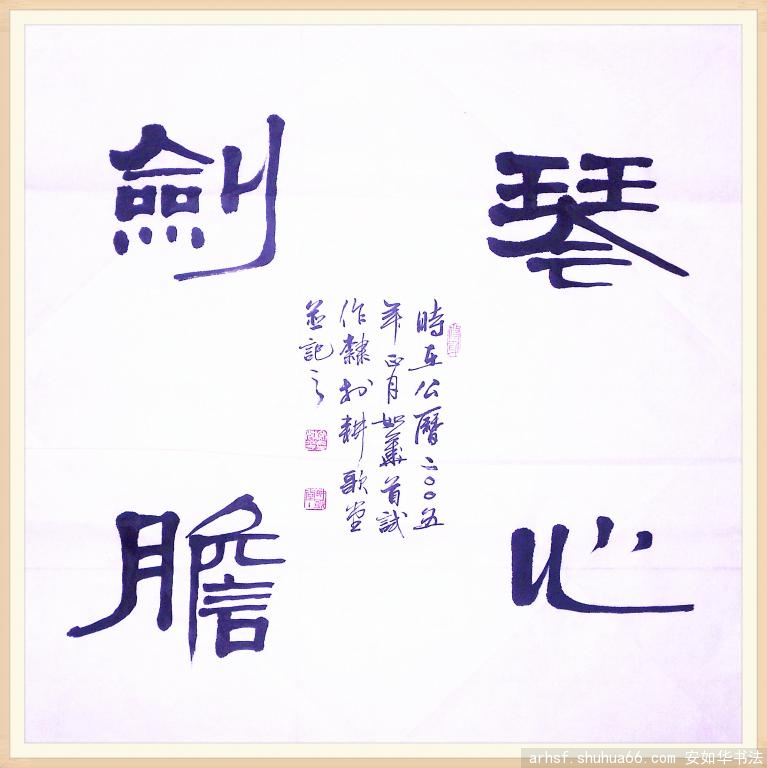 琴心
劍膽
時在公曆二〇〇五
年正月如華首試
作隸於耕歌堂
並記之
arhsf.shuhua66.com 安如华书法